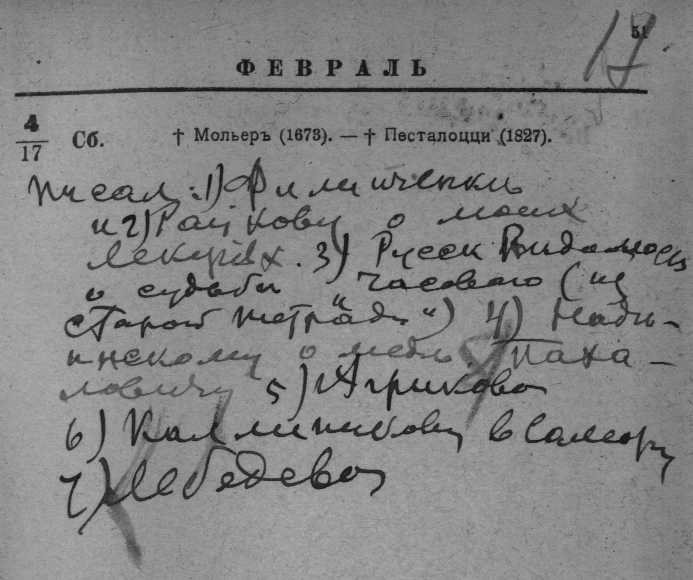 51
17
ФЕВРАЛЬ
4/17 Сб. † Мольеръ (1673). — † Песталоцци (1827).
Писал: 1) Филипченко
и 2) Райкову о моих
лекціях. 3) Русск Ведомость
о судьбы часового (из
старой тетради") 4) Нади-
нскому о
ловичу 5) Агрикова
6) Каллиникову в Самару
7) Лебедева